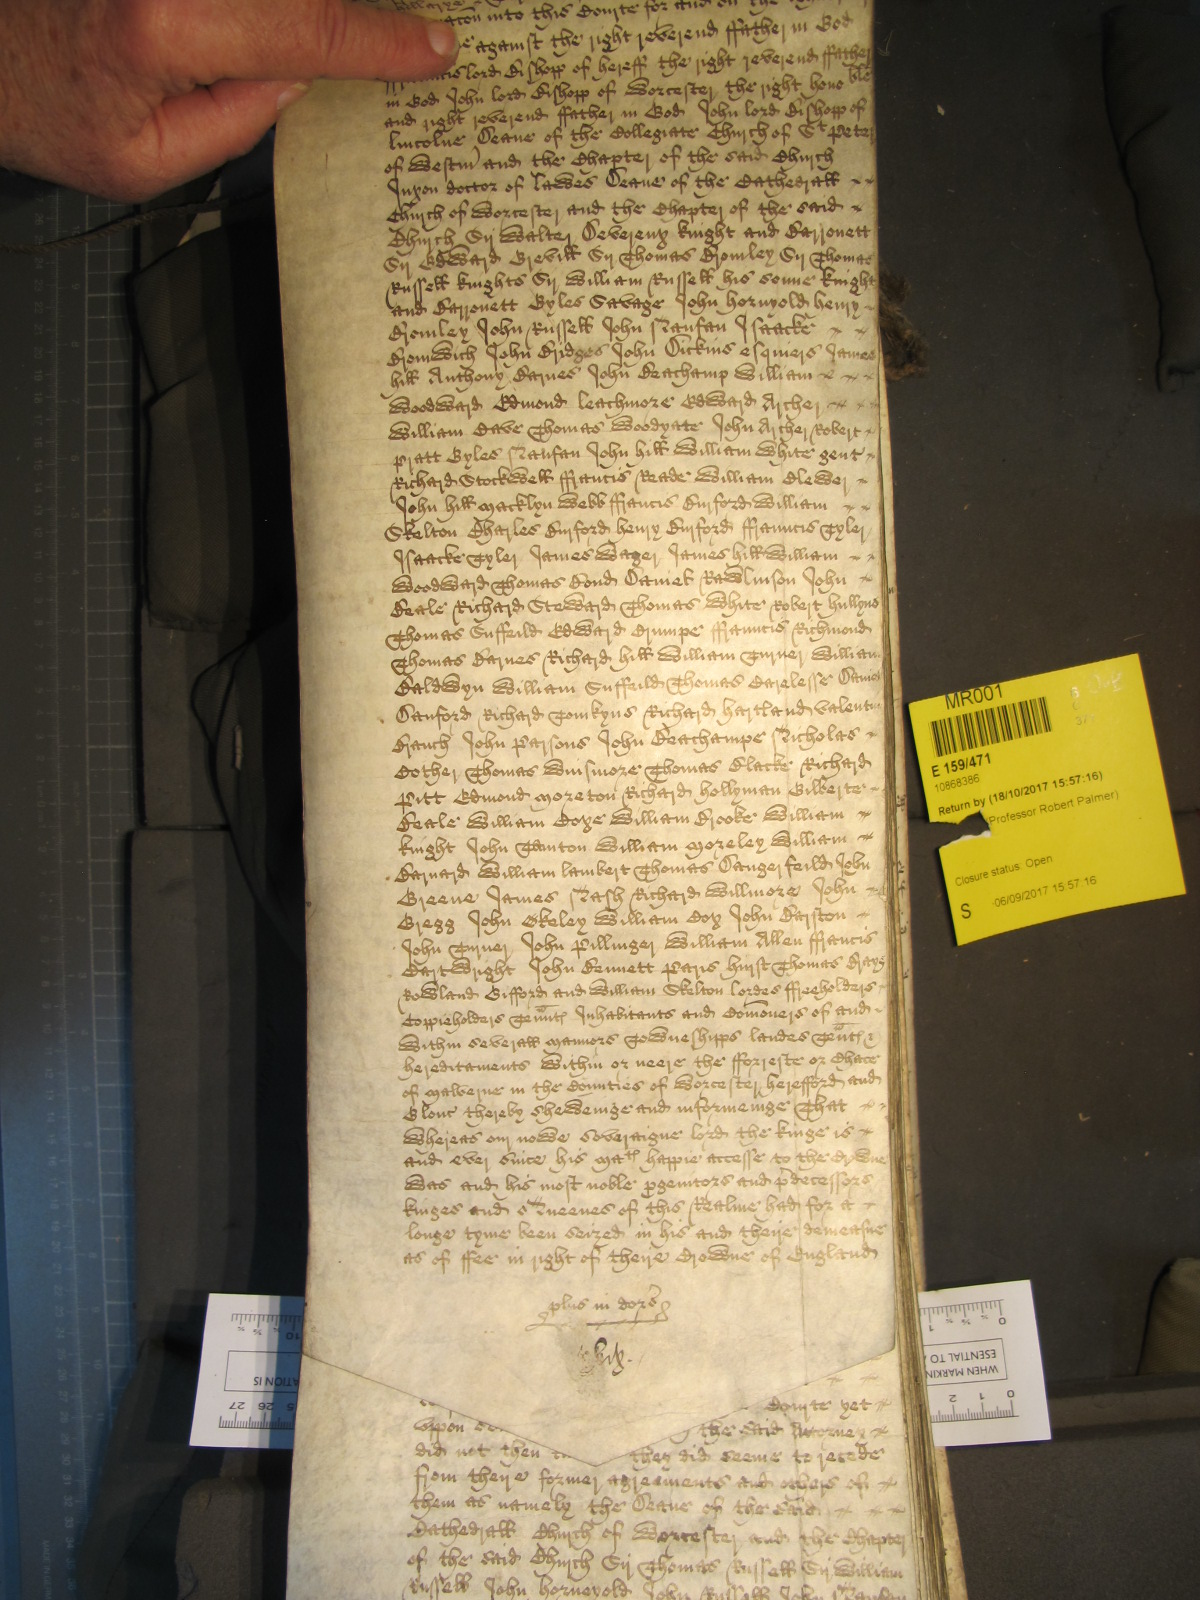 into this Courte for and on the
against the right reverend ffather in God
lord Bishopp of hereff the right reverend ffather
in God John lord Bishopp of Worcester the right hono ble
and right reverend ffather in God John lord Bishopp of
lincolne Deane of the Collegiate Church of St Peter
of Westm and the Chapter of the said Church
Juxon doctor of lawes Deane of the Cathedrall
Church of Worcester and the Chapter of the said
Church Sir Walter Devereux knight and Barronett
Sir Edward Grevill Sir Thomas Bromley Sir Thomas
Russell knights Sir William Russell his sonne knight
and Barronett Gyles Savage John hornyold henry
Bromley John Russell John Nanfan Isaacke
Bromwich John Bridges John Dickins esquiers James
hill Anthony Barnes John Beachamp William
Woodward Edmond leachmore Edward Archer
William Cave Thomas Woodyate John Archer Robert
Pratt Gyles Nanfan John hill William White gent
Richard Stockwell ffrancis Reade William Clewer
John hill Macklyn Webb ffrancis Burford William
Skelton Charles Burford henry Burford ffrancis Tyler
Isaacke Tyler James Wager James hill William
Woodward Thomas Bond Daniel Rawlinson John
Beale Richard Steward Thomas White Robert hullyns
Thomas Suffeild Edward Crumpe ffrancis Richmond
Thomas Barnes Richard hill William Turner William
Baldwyn William Suffeild Thomas Carelesse Daniel
Danford Richard Tomkyns Richard hartland Valentin
Branch John Parsons John Beachampe Nicholas
Cother Thomas Winsmore Thomas Clacke Richard
Pitt Edmond Moreton Richard hollyman Gilberte
Beale William Coxe William Brooke William
knight John Stanton William Moreley William
Barnard William lambert Thomas Dangerfeild John
Greene James Nash Richard Willmore John
Gregg John Okeley William Cox John Barston
John Turner John Pillinger William Allen ffrancis
Cartwright John Bennett Paris hurst Thomas
Rowland Gifford and William Skelton lordes ffreeholders
Coppieholders Tenntes Inhabitants and Comoners of and
within severall mannors Towneshipps landes Tentes &
hereditaments within or neere the fforreste or Chace
of Malverne in the Counties of Worcester herefford and
Glouc thereby sheweinge and informeinge That
whereas our nowe Soveraigne lord the kinge is
and ever since his Matis happie accesse to the Crowne
was and his most noble pgenitors and pdecessors
kinges and Queenes of this Realme had for a
longe tyme been seized in his and theire demeasne
as of ffee in right of theire Crowne of England
plus in dors
Courte yet
Upon
the said Attorney
did not then
they did seeme to recede
from theire former agreements and others of
them as namely the Deane of the said
Cathedrall Church of Worcester and the Chapter
of the said Church Sir Thomas Russell Sir William
Russell John hornevold John Russell John Nanfan
MR001
E 159/471
10868386
Return by (18/10/2017 15:57:16)
Professor Robert Palmer)
Closure status: Open
S
06/09/2017 15:57:16
WHEN MARKIN
ESSENTIAL TO